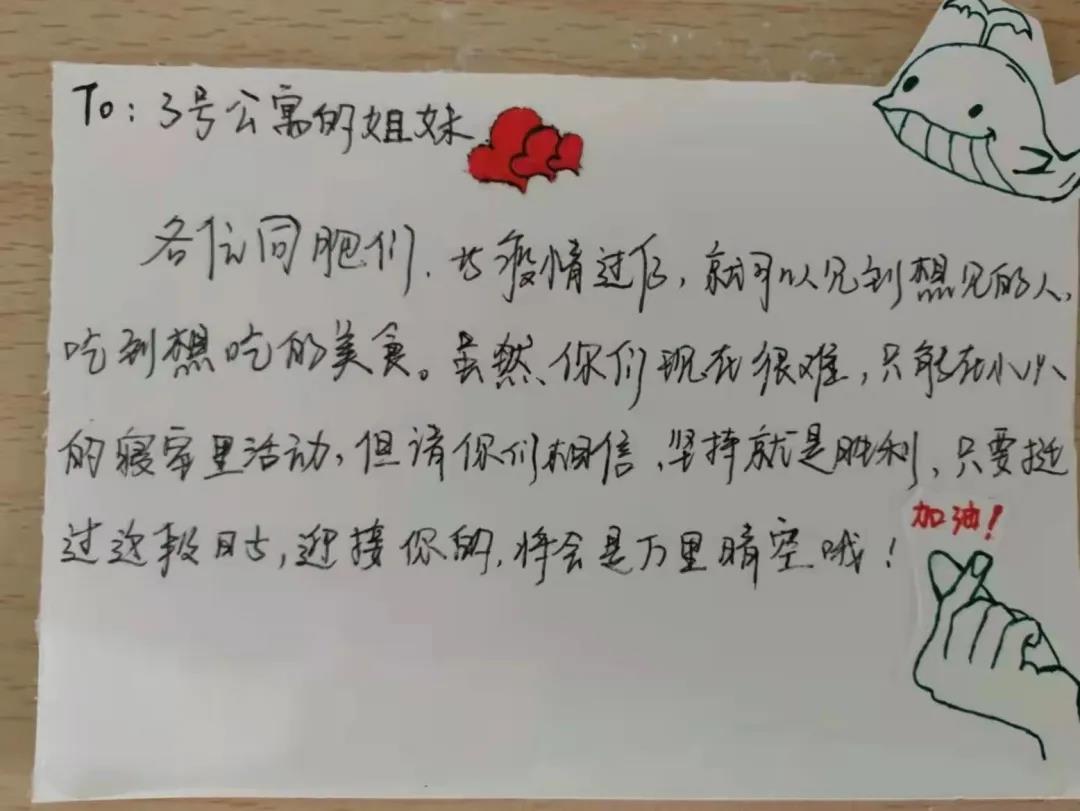 To：3号公寓的姐妹
各位同胞们，等疫情过后，就可以见到想见的人，
吃到想吃的美食。虽然、你们现在很难，只能在小小
的寝室里活动，但请你们相信，坚持就是胜利，只要挺
过这段日子，迎接你的，将会是万里晴空哦！
加油！